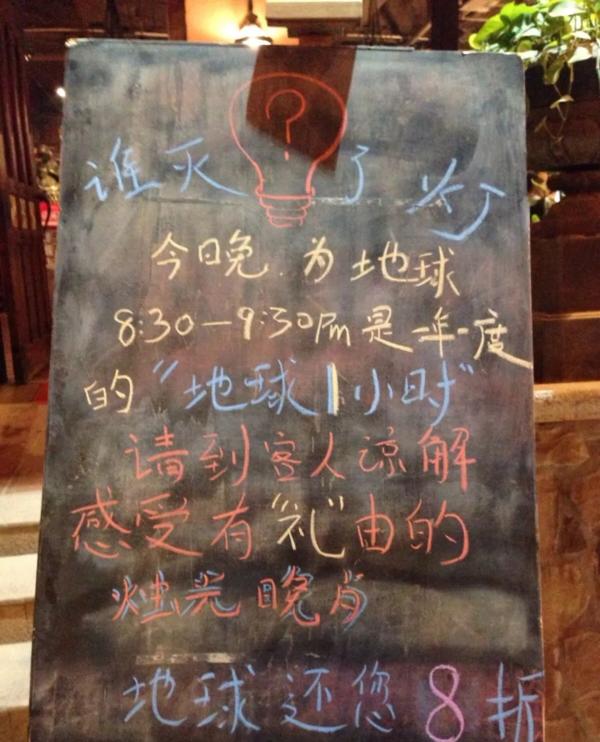 谁灭?了灯
今晚.为地球
8:30—9:30Pm是一年一度
的“地球1小时”
请到客人谅解
感受有“礼”由的
烛光晚肖
地球还您8折